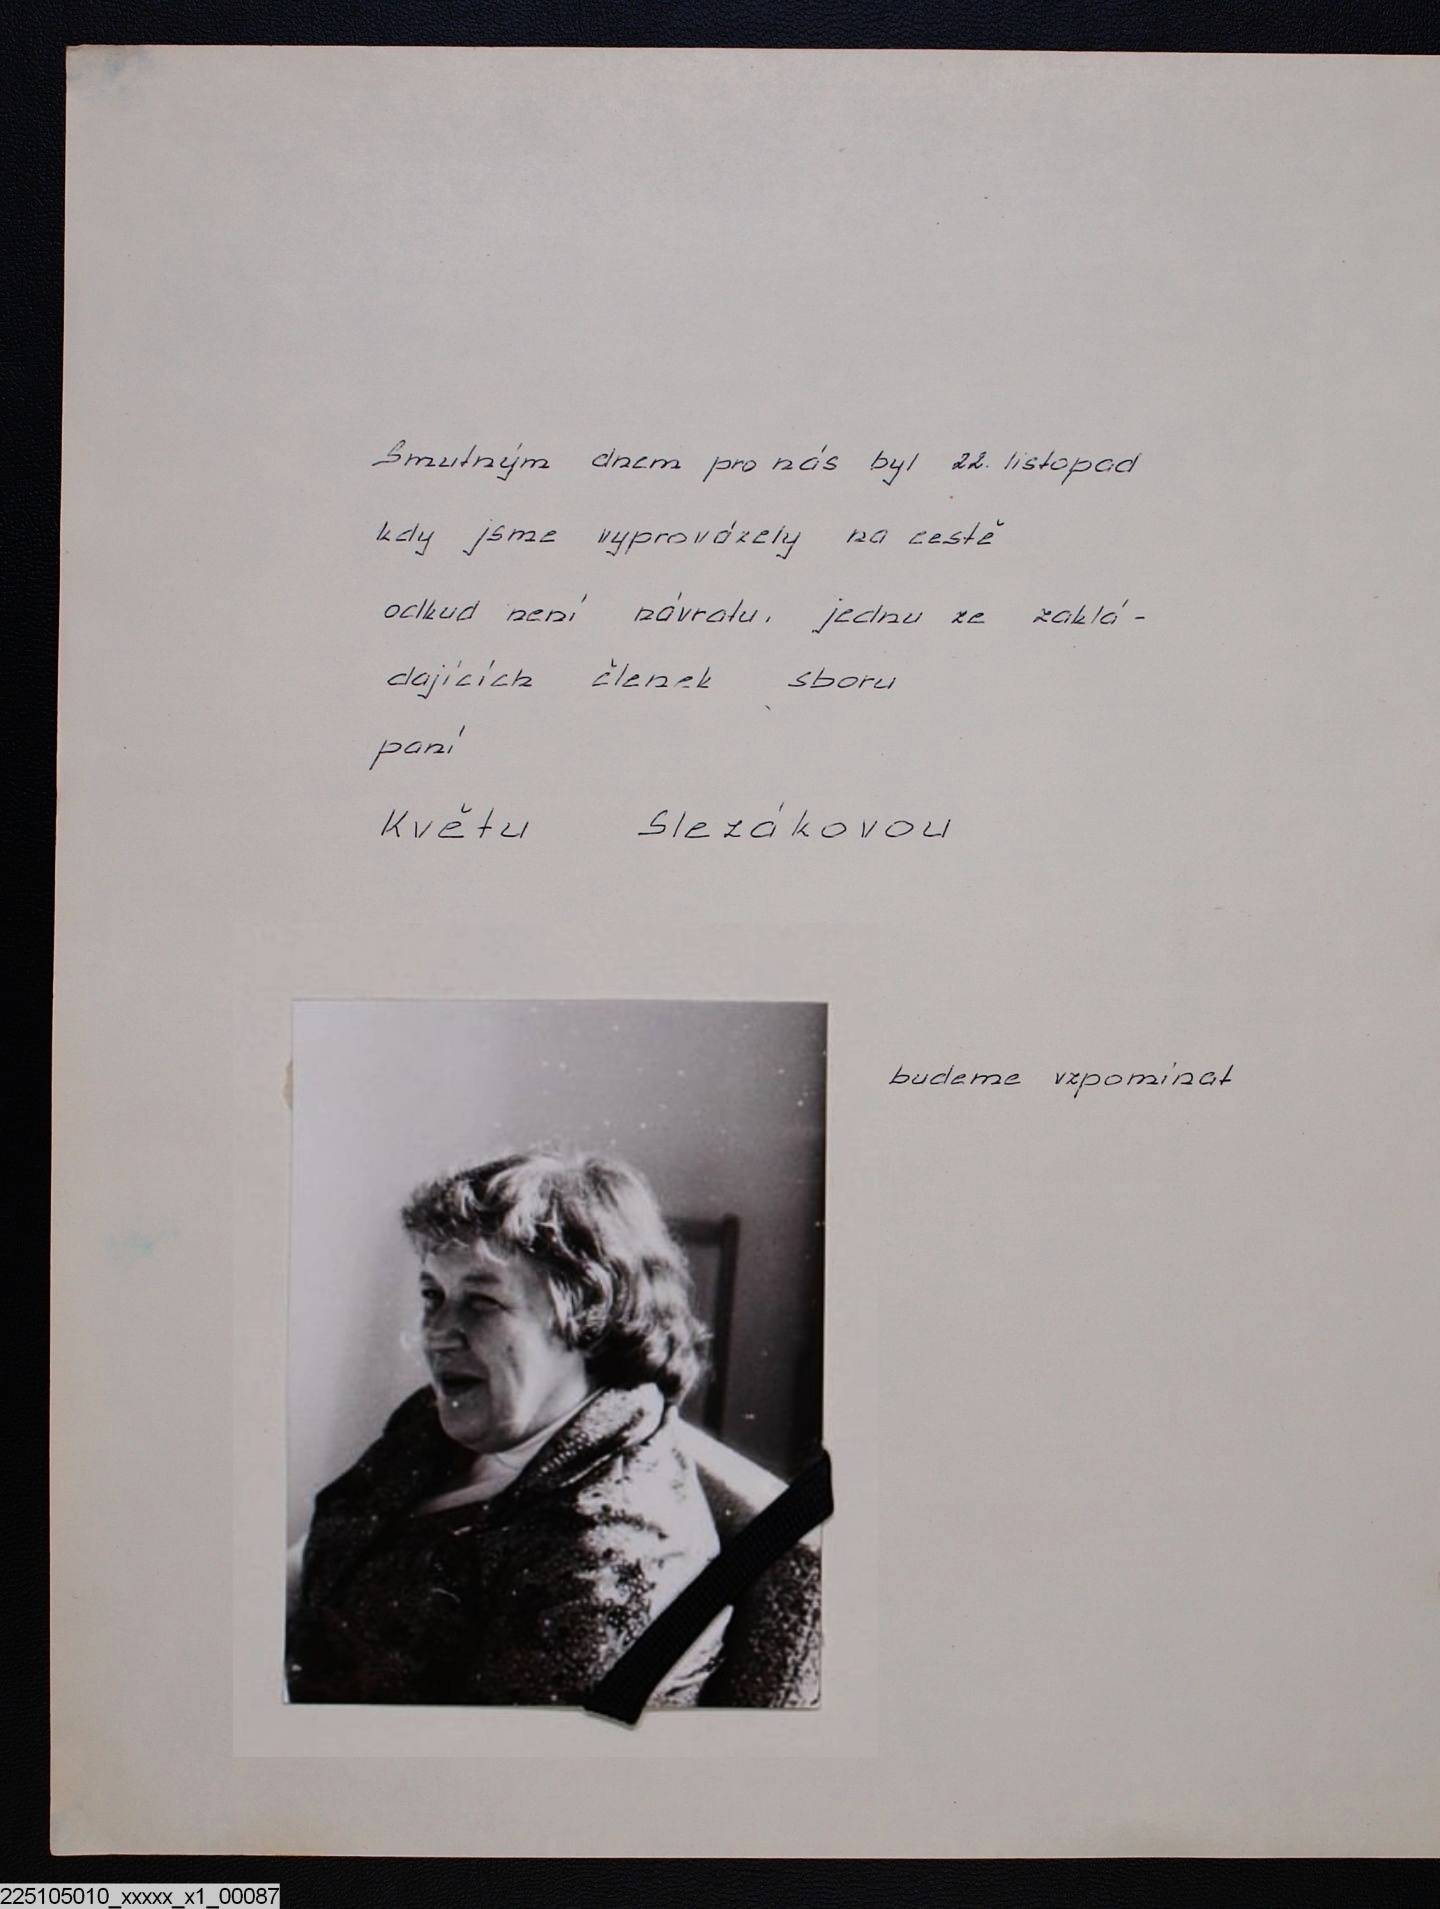 Smutným dnem pro nás byl 22. listopad
kdy jsme vyprovázely na cestě
odkud není návratu, jednu ze zaklá-
dajících členek sboru
paní
Květu Slezákovou
budeme vzpomínat
225105010_xxxxx_x1_00087